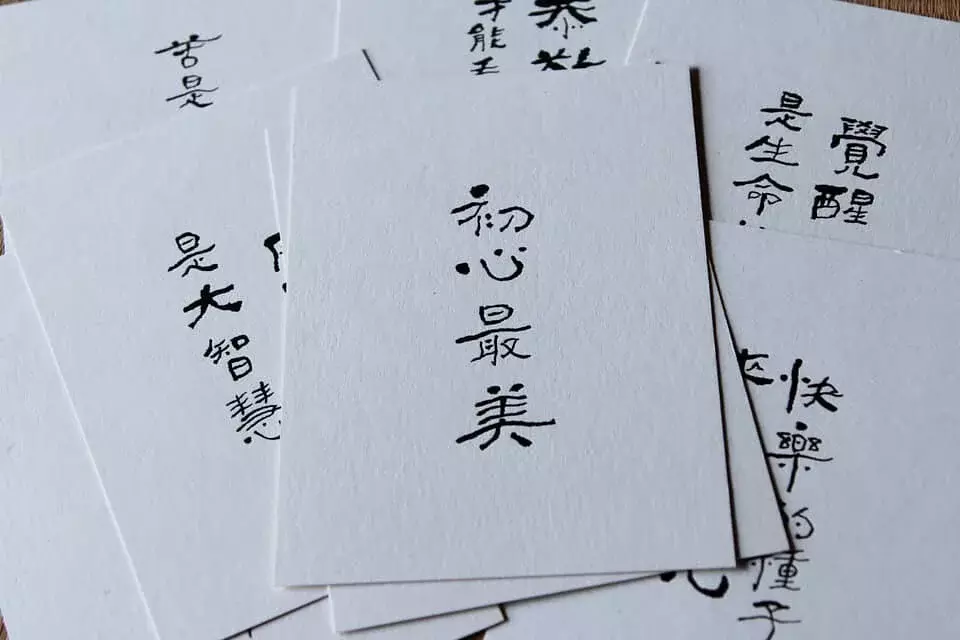 初心最美
覺醒
是生命
快樂的種子
是大智慧
苦是
恭敬
才能